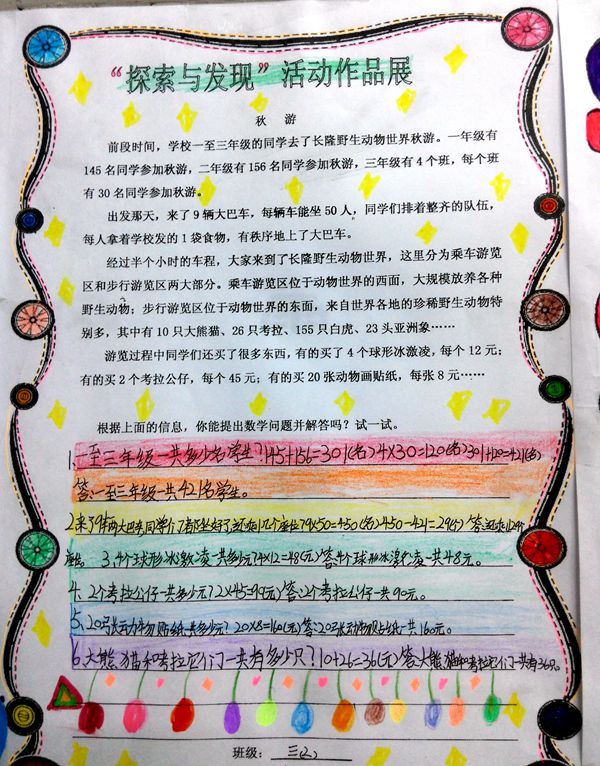 “探索与发现”活动作品展
秋 游
前段时间，学校一至三年级的同学去了长隆野生动物世界秋游。一年级有
145名同学参加秋游，二年级有156名同学参加秋游，三年级有4个班，每个班
有30名同学参加秋游。
出发那天，来了9辆大巴车，每辆车能坐50人，同学们排着整齐的队伍，
每人拿着学校发的1袋食物，有秩序地上了大巴车。
经过半个小时的车程，大家来到了长隆野生动物世界，这里分为乘车游览
区和步行游览区两大部分。乘车游览区位于动物世界的西面，大规模放养各种
野生动物；步行游览区位于动物世界的东面，来自世界各地的珍稀野生动物特
别多，其中有10只大熊猫、26只考拉、155只白虎、23头亚洲象……
游览过程中同学们还买了很多东西，有的买了4个球形冰激凌，每个12元；
有的买2个考拉公仔，每个45元；有的买20张动物画贴纸，每张8元……
根据上面的信息，你能提出数学问题并解答吗？试一试。
1.一至三年级一共多少名学生？145+156=301(名)4×30=120(名)301+120=421(名)
答：一至三年级一共421名学生。
2.来了9辆大巴车,同学们都坐好了,还剩几个座位？9×50=450(名)450-421=29(个)答:还剩29个
座位。 3.4个球形冰激凌一共多少元？4×12=48(元)答:4个球形冰激凌一共48元。
4.2个考拉公仔一共多少元？2×45=90(元)答:2个考拉公仔一共90元。
5.20张动物贴纸一共多少元？20×8=160(元)答:20张动物贴纸一共160元。
6.大熊猫和考拉它们一共有多少只？10+26=36(元)答:大熊猫和考拉它们一共有36只。
班级：三(2)